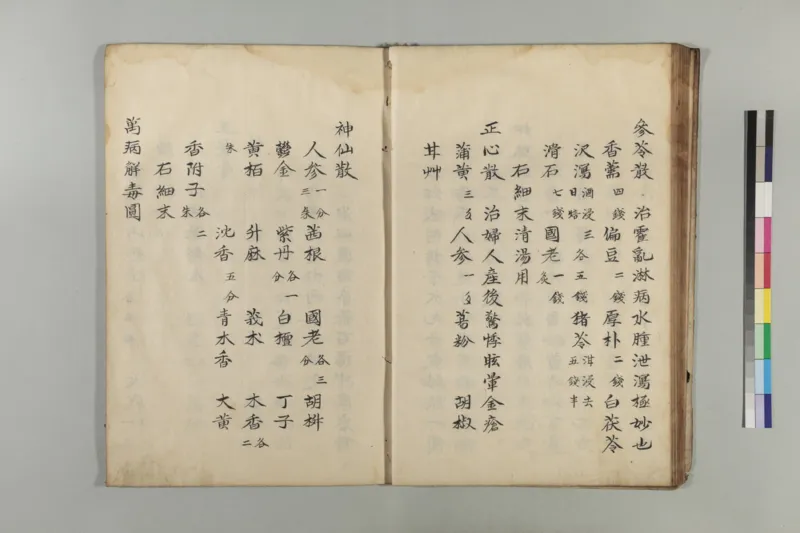 參苓散 治霍亂淋病水腫泄瀉極妙也
香薷四錢 偏豆二錢 厚朴二錢 白茯苓
沢瀉酒浸三日焙各五錢 猪苓泔浸去五錢半
滑石七錢 國老一錢炙
石細末清湯用
正心散 治婦人産後驚悸眩暈金瘡
蒲黄三匁 人参一匁 葛粉 胡椒
甘艸
神仙散
人参一分三朱 茜根 國老各三分 胡椒
鬱金 紫丹各一分 白檀 丁子
黄栢朱 升麻 莪朮 木香各二
沈香五分 青木香 大黄
香附子各二朱
石細末
萬病解毒圓